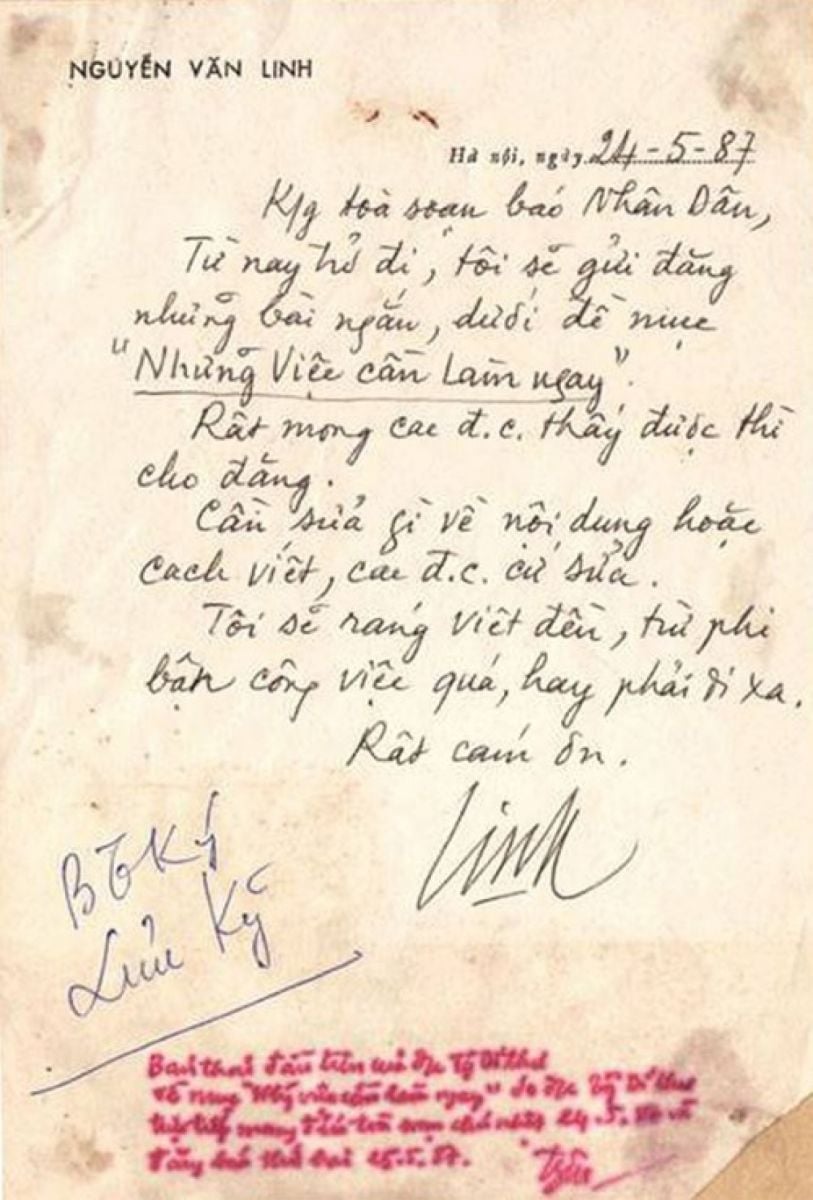 NGUYỄN VĂN LINH
Hà nội, ngày 24-5-87
K/g toà soạn báo Nhân Dân,
Từ nay trở đi, tôi sẽ gửi đăng
những bài ngắn, dưới đề mục
"Những Việc cần Làm ngay".
Rất mong các đ.c. thấy được thì
cho đăng.
Cần sửa gì về nội dung hoặc
cách viết, các đ.c. cứ sửa.
Tôi sẽ ráng viết đều, trừ phi
bận công việc quá, hay phải đi xa.
Rất cám ơn.
Linh
Lưu Kỹ
Bản thảo đầu tiên của đ/c Tg Bí thư
về mục "Những việc cần làm ngay" do đ/c Tg Bí thư
trực tiếp mang đến toà soạn chủ nhật 24-5-87 và
đăng báo thứ hai 25.5.87.